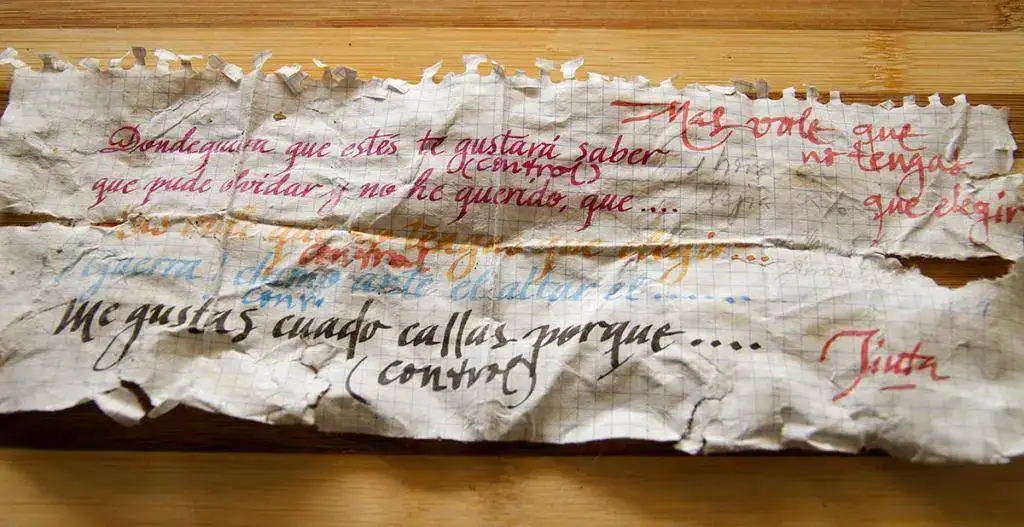 Dondequiera que estés te gustará saber
(control)
que pude olvidar y no he querido, que ....
Mas vale que
no tengas
que elegir
que no tengas que elegir...
control
(guerra) clamo ante el altar el .......
Contr.
Me gustas cuado callas porque ....
(control)
Tinta